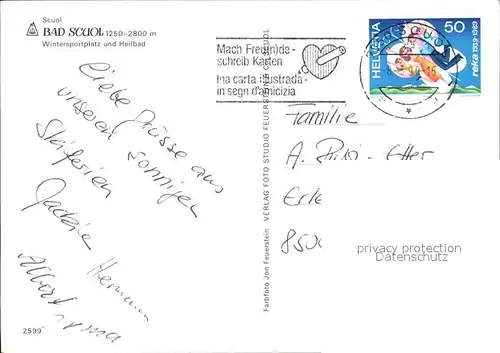 Scuol
BAD SCUOL 1250-2800 m
Wintersportplatz und Heilbad
Liebe Grüsse aus
unseren sonnigen
Skiferien
Hermann
Albert
2599
Farbfoto Jon Feuerstein
VERLAG FOTO STUDIO FEUERSTEIN SCUOL
Mach Freu(n)de-
schreib Karten
Ina carta illustrada-
in segn d'amicizia
HELVETIA
50
reka 1939-1989
Familie
A.
850
privacy protection
Datenschutz